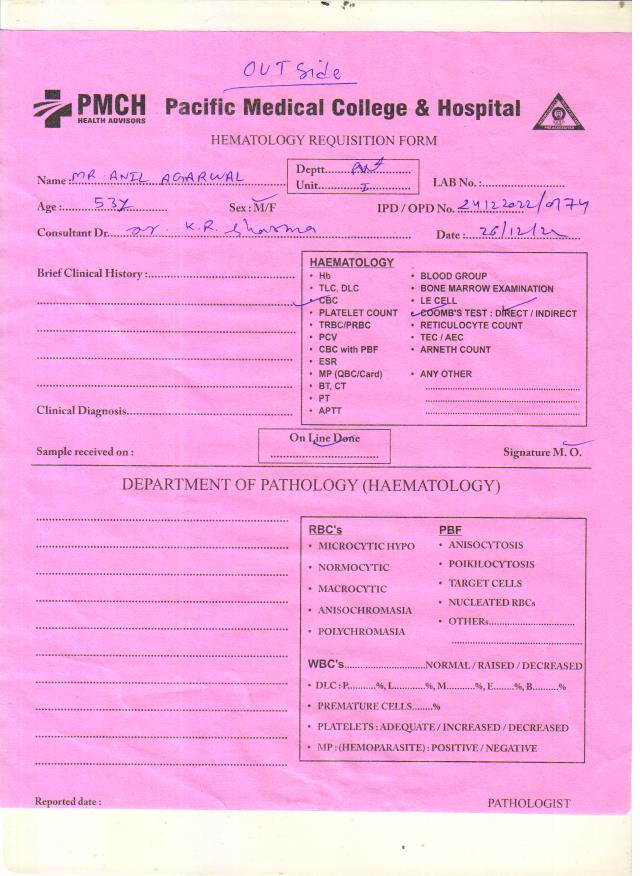 OUT Side
PMCH
HEALTH ADVISORS
Pacific Medical College & Hospital
HEMATOLOGY REQUISITION FORM
Name :MR ANIL AGARWAL
Deptt..........
Unit.....I.....
LAB No.:....................
Age :......53y......
Sex : M/F
IPD / OPD No. 24122022/0174
Consultant Dr. Dr. K.R. Sharma
Date : 26/12/22
Brief Clinical History :....................
HAEMATOLOGY
• Hb
• TLC, DLC
• CBC
• PLATELET COUNT
• TRBC/PRBC
• PCV
• CBC with PBF
• ESR
• MP (QBC/Card)
• BT, CT
• PT
• APTT
• BLOOD GROUP
• BONE MARROW EXAMINATION
• LE CELL
• COOMB'S TEST : DIRECT / INDIRECT
• RETICULOCYTE COUNT
• TEC / AEC
• ARNETH COUNT
• ANY OTHER
Clinical Diagnosis....................
On Line Done
Sample received on :
Signature M. O.
DEPARTMENT OF PATHOLOGY (HAEMATOLOGY)
RBC's
• MICROCYTIC HYPO
• NORMOCYTIC
• MACROCYTIC
• ANISOCHROMASIA
• POLYCHROMASIA
PBF
• ANISOCYTOSIS
• POIKILOCYTOSIS
• TARGET CELLS
• NUCLEATED RBCs
• OTHERs....................
WBC's....................NORMAL / RAISED / DECREASED
• DLC : P.........%, L..........%, M.........%, E.......%, B........%
• PREMATURE CELLS.......%
• PLATELETS : ADEQUATE / INCREASED / DECREASED
• MP : (HEMOPARASITE) : POSITIVE / NEGATIVE
Reported date :
PATHOLOGIST